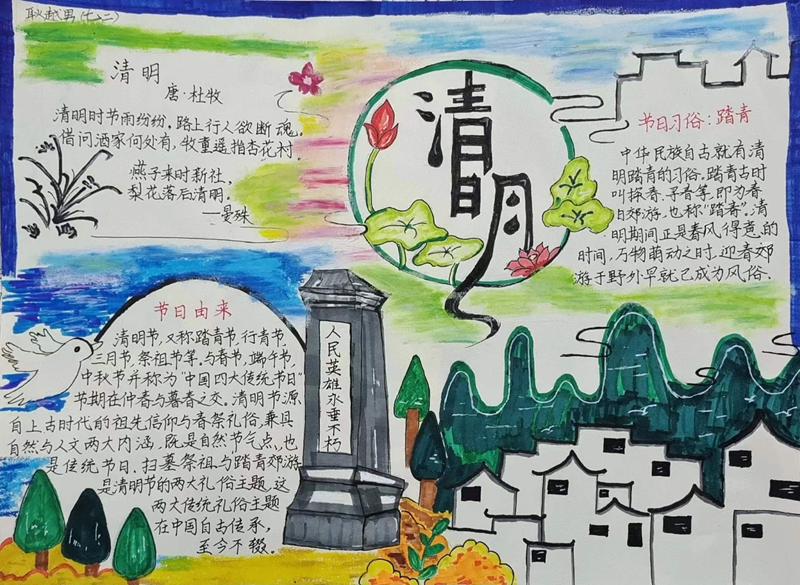 耿越男(七、二)
清明
唐·杜牧
清明时节雨纷纷,路上行人欲断魂。
借问酒家何处有,牧童遥指杏花村.
燕子来时新社,
梨花落后清明.
—晏殊
清明
节日习俗:踏青
中华民族自古就有清
明踏青的习俗.踏青古时
叫探春、寻春等,即为春
日郊游,也称"踏春".清
明期间正是春风得意的
时间,万物萌动之时,迎春郊
游于野外早就已成为风俗.
节日由来
清明节,又称踏青节,行青节,
三月节,祭祖节等,与春节,端午节,
中秋节并称为"中国四大传统节日"
节期在仲春与暮春之交.清明节源
自上古时代的祖先信仰与春祭礼俗,兼具
自然与人文两大内涵,既是自然节气点,也
是传统节日.扫墓祭祖与踏青郊游
是清明节的两大礼俗主题,这
两大传统礼俗主题
在中国自古传承,
至今不辍.
人民英雄永垂不朽